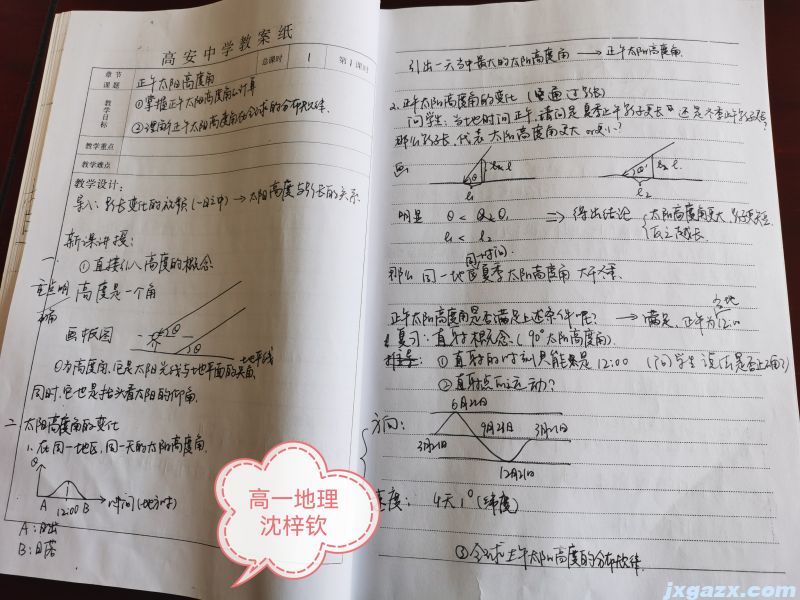 高安中学教案纸
章节
课题
正午太阳高度角
总课时
1
第1课时
教学目标
①掌握正午太阳高度角的计算
②理解正午太阳高度角在全球的分布规律.
教学重点
教学难点
教学设计:
导入: 影长变化的视频(一日之中) → 太阳高度与影长的关系.
新课讲授:
一.
①直接引入高度的概念
重点明确
高度是一个角
画板图
θ
θ
地平线
θ为高度角,它是太阳光线与地平面的夹角.
同时,它也是抬头看太阳的仰角.
二. 太阳高度角的变化
1. 在同一地区,同一天的太阳高度角.
θ
A 12:00 B 时间(地方时)
A:日出
B:日落
引出一天当中最大的太阳高度角 → 正午太阳高度角.
2. 正午太阳高度角的变化 (通过影长)
问学生,当地时间正午,请问是夏季正午影子更长 还是冬季正午影子更长?
那么影长,代表太阳高度角更大 or 更小?
画:
θ
l₁
l₂
明显
l₁ < l₂
⇒ 得出结论
太阳高度角更大,影子更短.
反之越长.
同一时间
那么同一地区夏季太阳高度角大于冬季.
正午太阳高度角是否满足上述条件呢? → 满足,正午为12:00
复习: 直射概念.(90°太阳高度角).
①直射的时刻只能是12:00 (问学生说法是否正确?)
②直射点的运动?
方向:
6月22日
3月21日
9月23日
3月21日
12月22日
速度: 4天1°(纬度)
③全球正午太阳高度的分布规律.
高一地理
沈梓钦
jxgazx.com